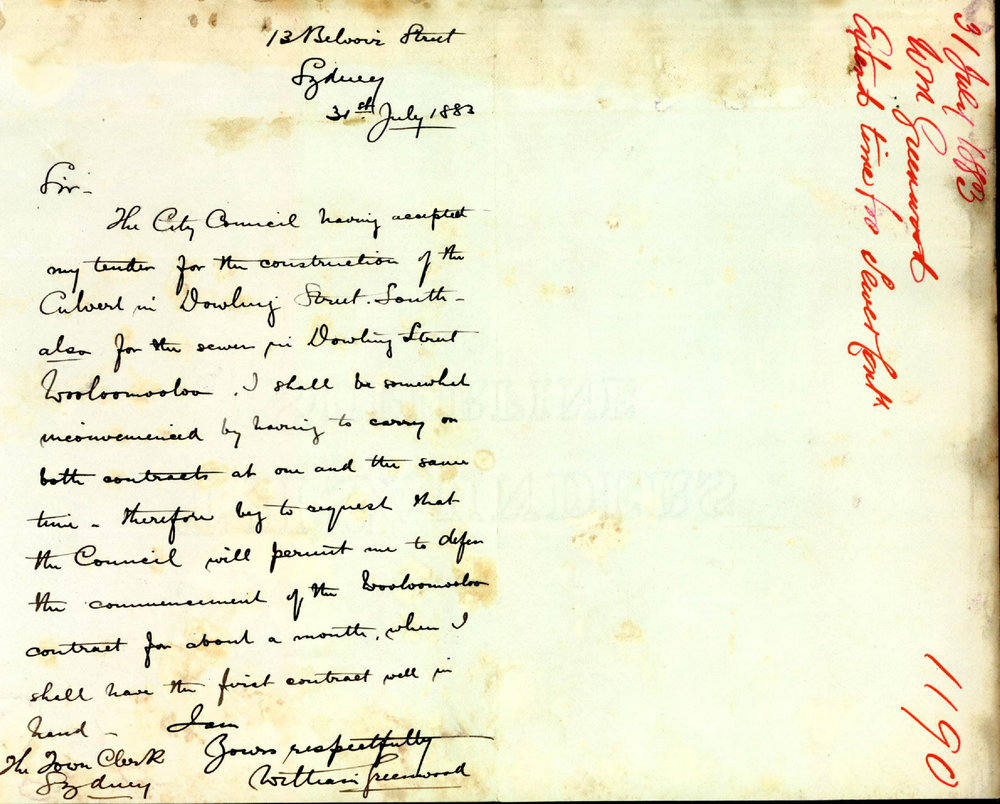 13 Belvoir Street
Sydney
31st July 1883
Sir-
The City Council having accepted
my tender for the construction of the
Culvert in Dowling Street. South -
also for the sewer in Dowling Street
Wooloomooloo. I shall be somewhat
inconvenienced by having to carry on
both contracts at one and the same
time - therefore beg to request that
the Council will permit me to defer
the commencement of the Wooloomooloo
contract for about a month, when I
shall have the first contract well in
hand - I am
Yours respectfully
William Greenwood
The Town Clerk
Sydney
31 July 1883
Wm Greenwood
Extend time for Sewer
1190